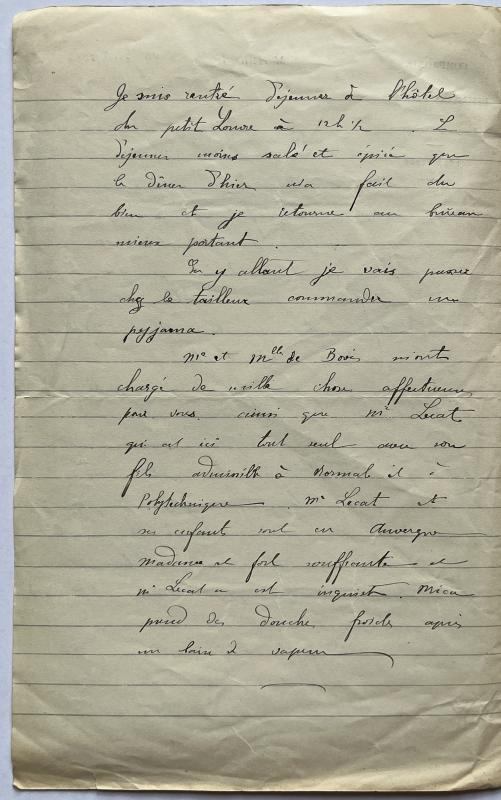 Je suis rentré déjeuner à l'hôtel
du petit Louvre à 12 h 1/2. L
déjeuner moins salé et épicé que
le dîner d'hier m'a fait du
bien et je retourne au bureau
mieux portant.
En y allant je vais passer
chez le tailleur commander un
pyjama.
Me et Melle de Bovis m'ont
chargé de mille chose affectueuses
pour vous, ainsi que Mr Lecat
qui est ici tout seul avec son
fils admissible à Normale et à
Polytechnique. Me Lecat et
ses enfants sont en Auvergne
Madame est fort souffrante et
Mr Lecat en est inquiet.
prend des douches froides après
un bain de vapeur